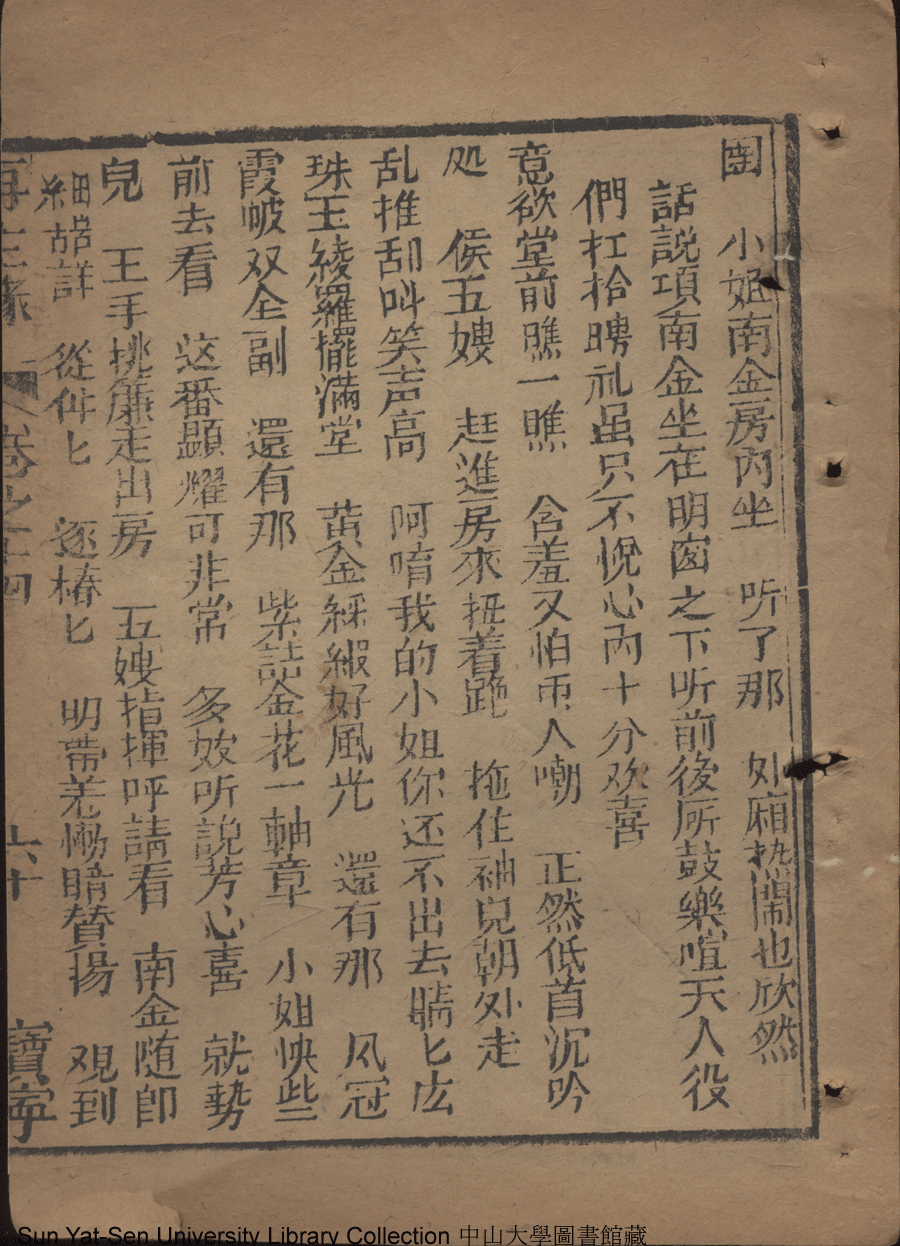 團 小姐南金房內坐 听了那 外廂热鬧也欣然
話說項南金坐在明窗之下听前後所鼓樂喧天人役
們扛拾聘礼虽只不悅心內十分欢喜
意欲堂前瞧一瞧 含羞又怕甭人嘲 正然低首沉吟
処 侯五嫂 赶進房來扭着跑 拖住袖兒朝外走
乱推刮呌笑声高 阿唷我的小姐你还不出去睛匕庅
珠玉綾羅擺滿堂 黄金綵緞好風光 還有那 风冠
霞帔双全副 還有那 紫誥金花一軸章 小姐怏些
前去看 这番顯耀可非常 多姣听説芳心喜 就勢
皃 王手挑簾走出房 五嫂指揮呼請看 南金随卽
細詳 從件匕 逐椿匕 明帶羞慚暗賛揚 观到
再生緣 卷之十四 六十 寶寧
Sun Yat-Sen University Library Collection 中山大學圖書館藏